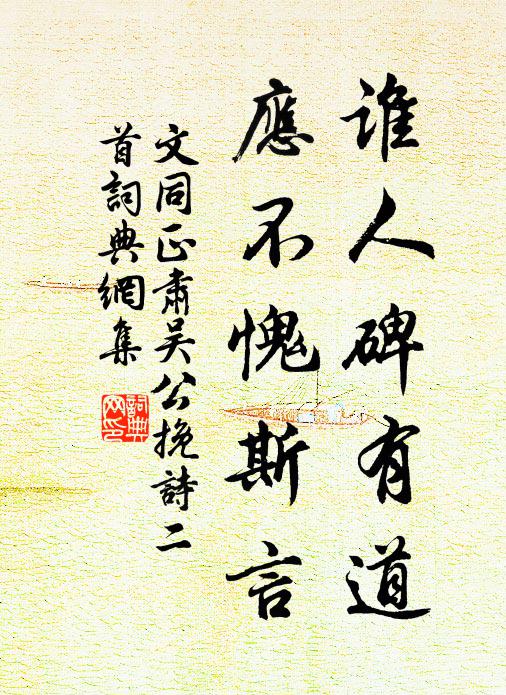 誰人碑有道
應不愧斯言
文同正肅吳公挽詩二
首詞典網集
詞典
网印